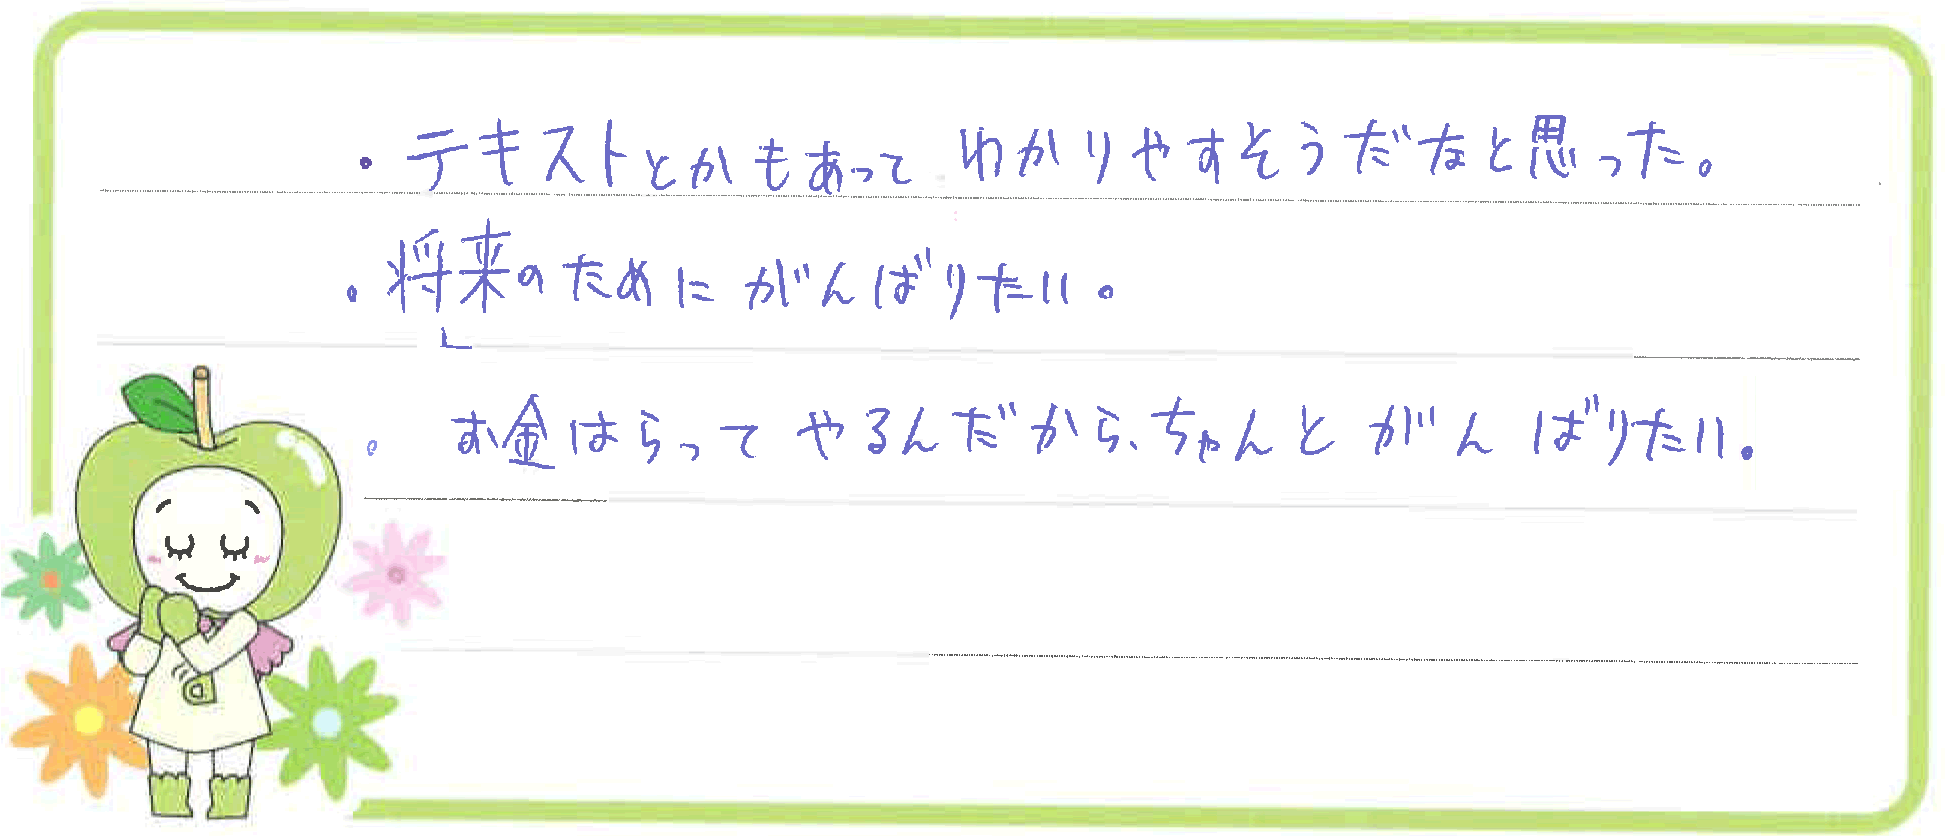 ・テキストとかもあって わかりやすそうだなと思った。
・将来のためにがんばりたい。
・お金はらってやるんだから、ちゃんとがんばりたい。